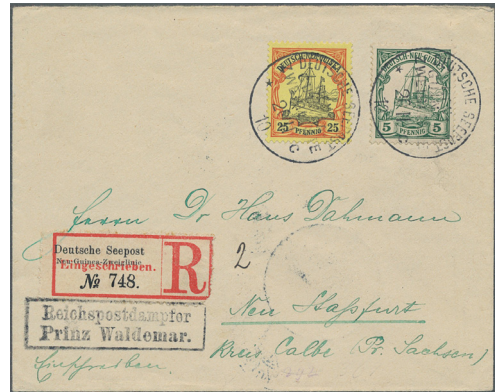 DEUTSCH-NEU-GUINEA
25 25
PFENNIG
DEUTSCH-NEU-GUINEA
5 5
PFENNIG
DEUTSCHE SEEPOST
DEUTSCHE SEEPOST
Herrn Dr Hans Dahmann
Deutsche Seepost
Neu-Guinea-Zweiglinie
Eingeschrieben.
№ 748.
R
2
Neu Staßfurt
Reichspostdampfer
Prinz Waldemar.
Kreis Calbe (Pr. Sachsen)
Einschreiben